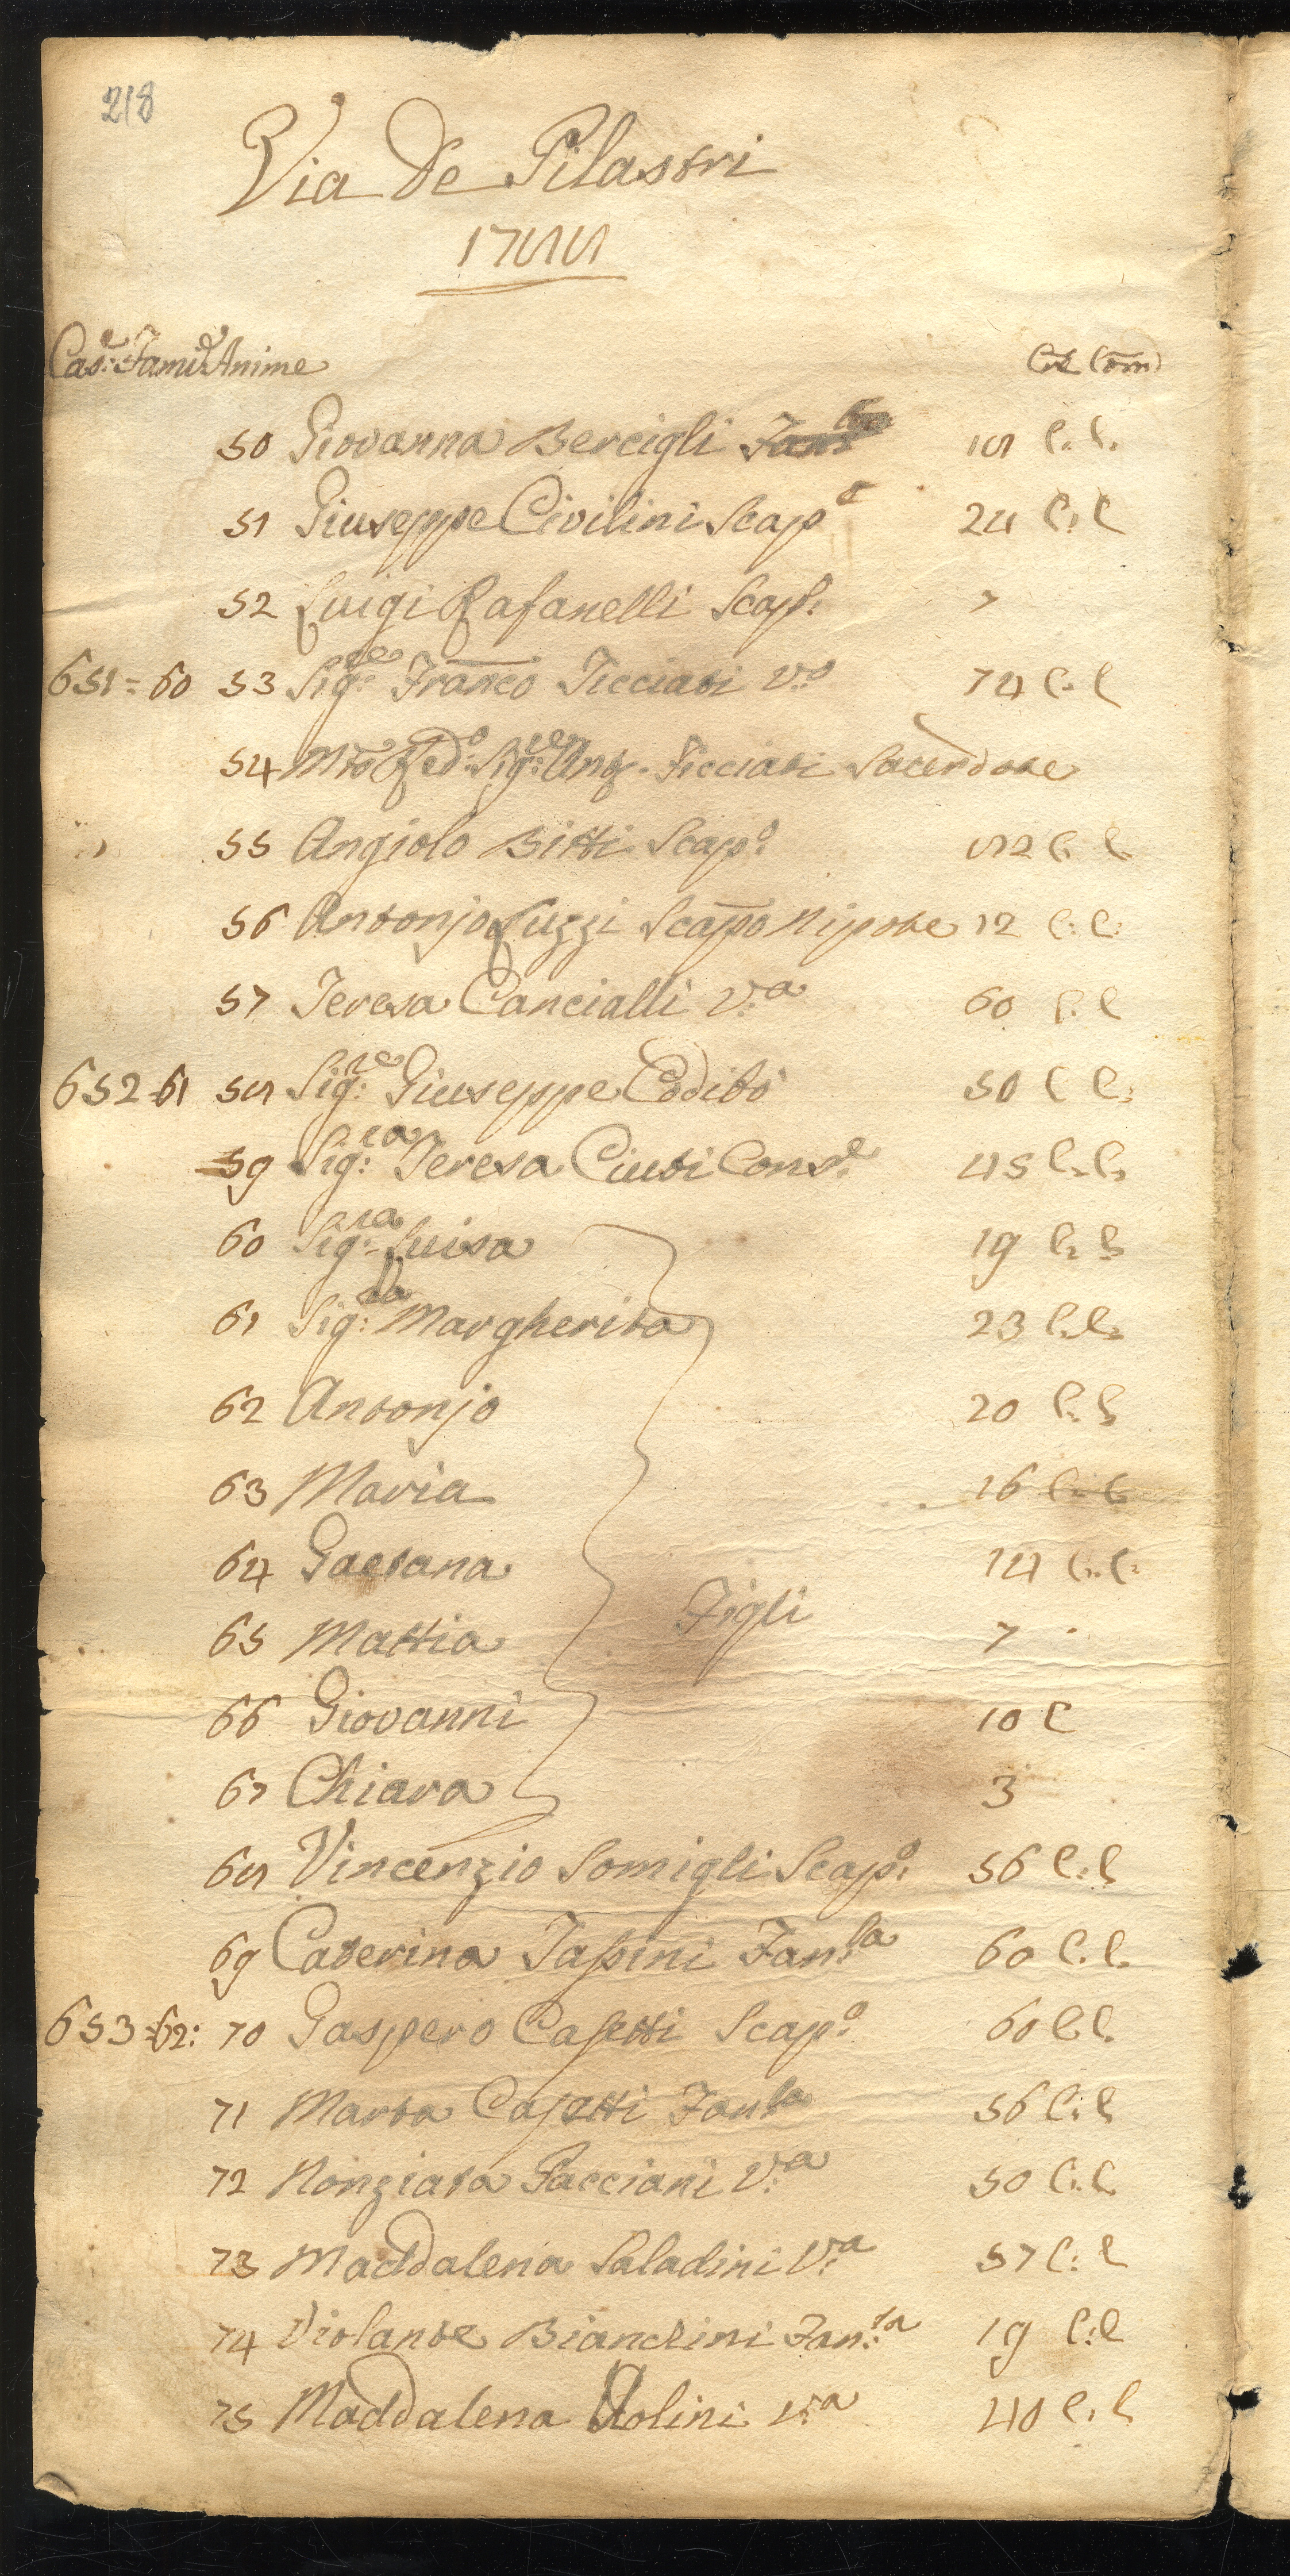 218
Via de Pilastri
1788
Cas:e Fami:e Anime Cre Com
50 Giovanna Bercigli 18 C. C.
51 Giuseppe Civilini Scap.o 24 C. C
52 Luigi Rafanelli Scap.o 7
651 = 60 53 Sig:re Franco Ticciati V.o 74 C. C
54 Mto Red.o Sig:re Ant. Ticciati Sacerdote
55 Angiolo Bitti Scap.o 82 C. C.
56 Antonjo Luzzi Scapo Nipote 12 C: C:
57 Teresa Cancialli V.a 60 C. C
652 61 58 Sig:re Giuseppe Codibò 50 C C:
59 Sig:ra Teresa Ciuti Cons.e 45 C. C.
60 Sig:ra Luisa 19 C. C
61 Sig:ra Margherita 23 C. C.
62 Antonjo 20 C. C
63 Maria 16 C. C
64 Gaetana 14 C. C.
Figli
65 Mattia 7
66 Giovanni 10 C
67 Chiara 3
68 Vincenzio Somigli Scap.o 56 C. C
69 Caterina Tassini Fan.la 60 C. C.
653 62: 70 Gaspero Casetti Scap.o 60 C. C.
71 Marta Casetti Fan.la 56 C. C
72 Nonziata Pacciani V.a 50 C. C.
73 Maddalena Saladini V.a 57 C: C
74 Violante Bianchini Fan.la 19 C: C
75 Maddalena V.a 40 C. C